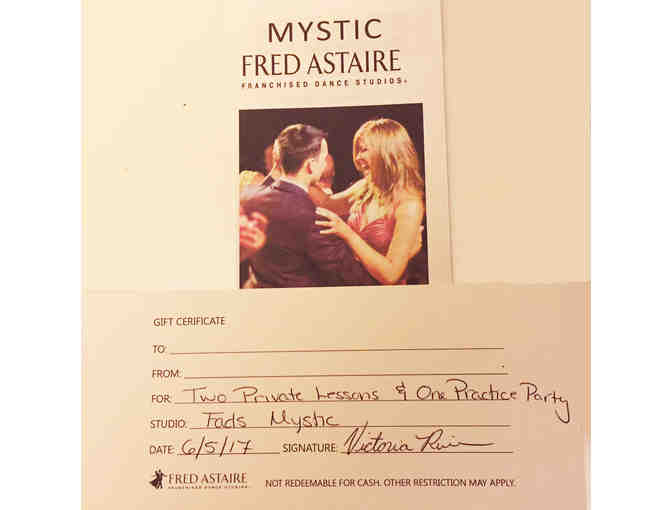 MYSTIC
FRED ASTAIRE
FRANCHISED DANCE STUDIOS
GIFT CERIFICATE
TO:
FROM:
FOR: Two Private Lessons & One Practice Party
STUDIO: Fads Mystic
DATE: 6/5/17 SIGNATURE: Victoria
FRED ASTAIRE
FRANCHISED DANCE STUDIOS
NOT REDEEMABLE FOR CASH. OTHER RESTRICTION MAY APPLY.